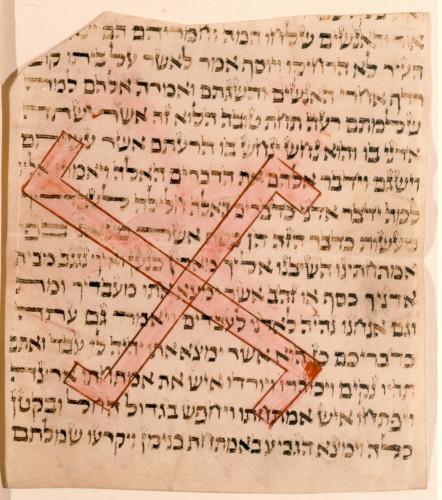 אור והאנשים שלחו המה וחמריהם הם
העיר לא הרחיקו ויוסף אמר לאשר על ביתו קום
רדף אחרי האנשים והשגתם ואמרת אלהם למה
שלמתם רעה תחת טובה הלוא זה אשר ישתה
אדני בו והוא נחש ינחש בו הרעתם אשר עשיתם
וישגם וידבר אלהם את הדברים האלה ויאמרו אליו
למה ידבר אדני כדברים האלה חלילה לעבדיך
מעשות כדבר הזה הן כסף אשר
אמתחתינו השיבנו אליך מארץ כנען ואיך נגנב מבית
אדניך כסף או זהב אשר ימצא אתו מעבדיך ומת
וגם אנחנו נהיה לאדני לעבדים ויאמר גם עתה
כדבריכם כן הוא אשר ימצא אתו יהיה לי עבד ואתם
תהיו נקים וימהרו ויורדו איש את אמתחתו ארצה
ויפתחו איש אמתחתו ויחפש בגדול החל ובקטן
כלה וימצא הגביע באמתחת בנימן ויקרעו שמלתם